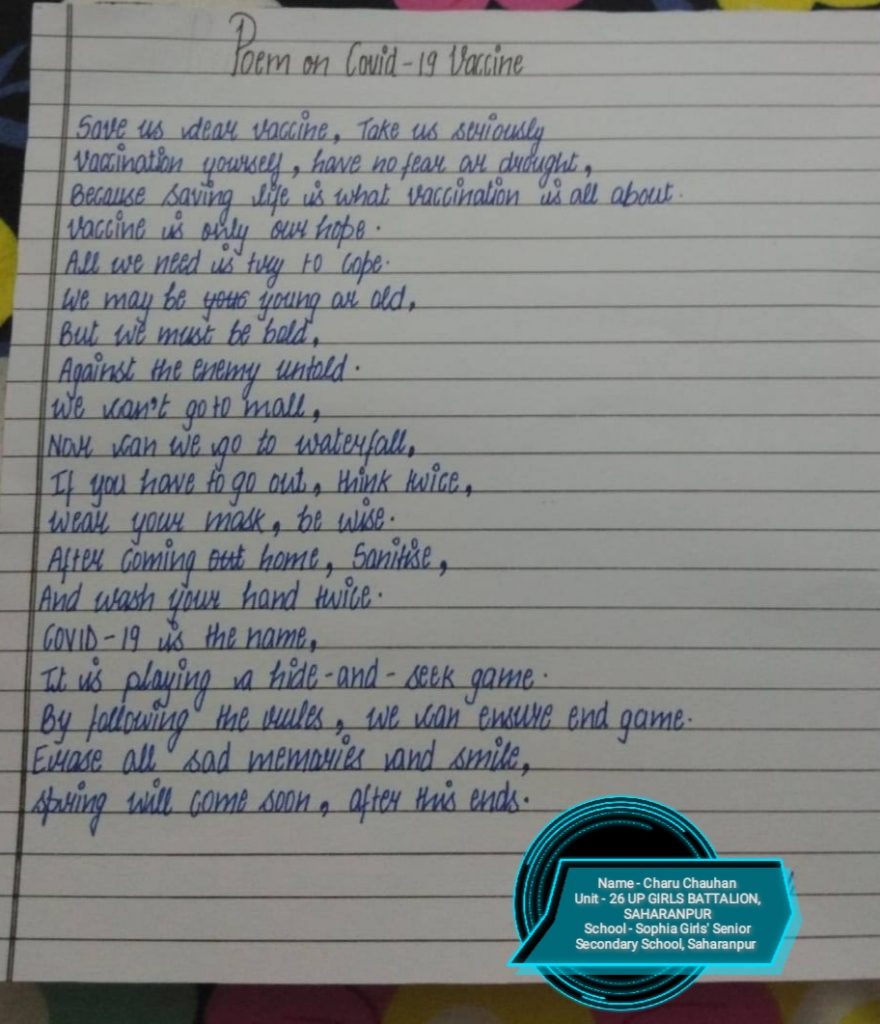 Poem on Covid-19 Vaccine
Save us dear vaccine, Take us seriously
Vaccination yourself, have no fear or drought,
Because saving life is what vaccination is all about.
Vaccine is only our hope.
All we need is try to cope.
We may be your young or old,
But we must be bold,
Against the enemy untold.
We can't go to mall,
Nor can we go to waterfall,
If you have to go out, think twice,
Wear your mask, be wise.
After coming out home, Sanitise,
And wash your hand twice.
COVID-19 is the name,
It is playing a hide-and-seek game.
By following the rules, we can ensure end game.
Erase all sad memories and smile,
spring will come soon, after this ends.
Name - Charu Chauhan
Unit - 26 UP GIRLS BATTALION,
SAHARANPUR
School - Sophia Girls' Senior
Secondary School, Saharanpur